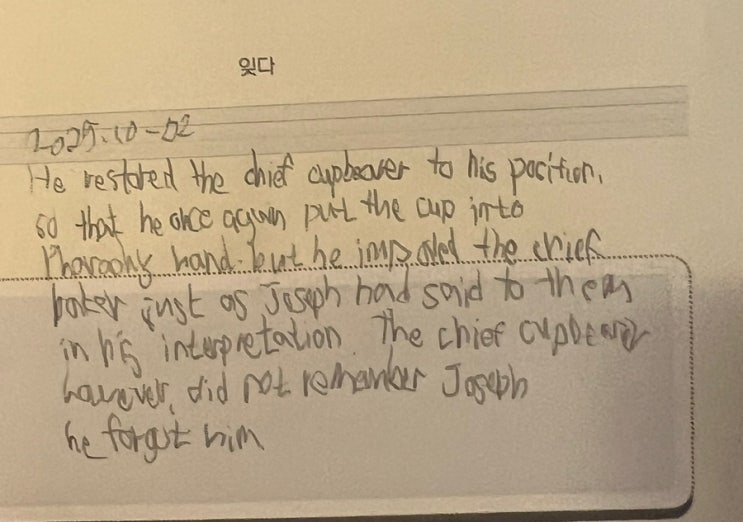 잊다
2025.10-02
He restored the chief cupbearer to his position,
so that he once again put the cup into
Pharaoh's hand. but he impaled the chief
baker just as Joseph had said to them
in his interpretation. The chief cupbearer
however, did not remember Joseph
he forgot him